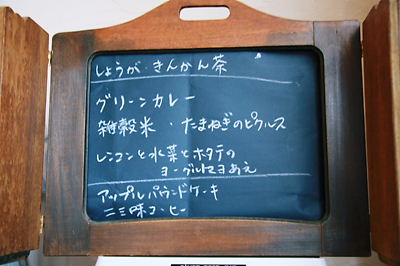 しょうが・きんかん茶
グリーンカレー
雑穀米・たまねぎのピクルス
レンコンと水菜とホタテの
ヨーグルトマヨあえ
アップルパウンドケーキ
二三味コーヒー